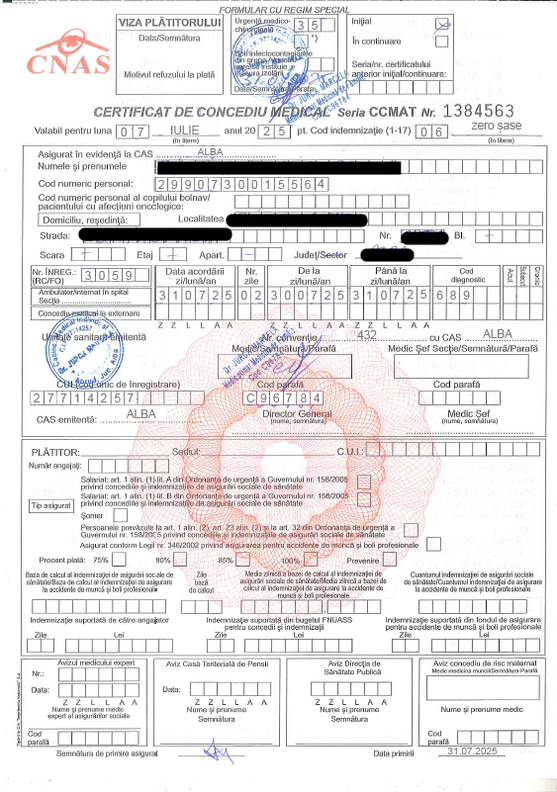 FORMULAR CU REGIM SPECIAL
VIZA PLĂTITORULUI
Data/Semnătura
Motivul refuzului la plată
CNAS
Urgență medico-
35
Inițial
În continuare
Seria/nr. certificatului
anterior inițial/continuare:
CERTIFICAT DE CONCEDIU MEDICAL Seria CCMAT Nr. 1384563
Valabil pentru luna 07 IULIE anul 2025 pt. Cod indemnizație (1-17) 06 zero șase
(în litere) (în litere)
Asigurat în evidență la CAS ALBA
Numele și prenumele
Cod numeric personal: 2990730015564
Cod numeric personal al copilului bolnav/
pacientului cu afecțiuni oncologice:
Domiciliu, reședință: Localitatea
Strada: Nr. Bl.
Scara Etaj Apart. Județ/Sector
Nr. ÎNREG.: (RC/FO) 3059
Data acordării zi/lună/an Nr. zile De la zi/lună/an Până la zi/lună/an Cod diagnostic Acut Subacut Cronic
Ambulator/internat în spital
Secția
310725 02 300725 310725 689
Concediu medical la externare
ZZLLAA ZZLLAA
Unitate sanitară emitentă Nr. convenție 432 cu CAS ALBA
Medic/Semnătură/Parafa Medic Șef Secție/Semnătură/Parafă
CUI (cod unic de înregistrare) Cod parafă Cod parafă
27714257 C96784
CAS emitentă: ALBA Director General Medic Șef
(nume, semnătura) (nume, semnătura)
PLĂTITOR: Sediul: C.U.I.:
Număr angajați:
Tip asigurat
Salariat: art. 1 alin. (1) lit. A din Ordonanța de urgență a Guvernului nr. 158/2005
privind concediile și indemnizațiile de asigurări sociale de sănătate
Salariat: art. 1 alin. (1) lit. B din Ordonanța de urgență a Guvernului nr. 158/2005
privind concediile și indemnizațiile de asigurări sociale de sănătate
Șomer
Persoanele prevăzute la art. 1 alin. (2), art. 23 alin. (2) și la art. 32 din Ordonanța de urgență a
Guvernului nr. 158/2005 privind concediile și indemnizațiile de asigurări sociale de sănătate
Asigurat conform Legii nr. 346/2002 privind asigurarea pentru accidente de muncă și boli profesionale
Procent plată: 75% 80% 85% 100% Prevenire
Baza de calcul al indemnizației de asigurări sociale de
sănătate/Baza de calcul al indemnizației de asigurare
la accidente de muncă și boli profesionale
Zile
bază
de calcul
Media zilnică a bazei de calcul al indemnizației de
asigurări sociale de sănătate/Media zilnică a bazei de
calcul al indemnizației de asigurare la accidente de
muncă și boli profesionale
Cuantumul indemnizației de asigurări sociale
de sănătate/Cuantumul indemnizației de asigurare
la accidente de muncă și boli profesionale
Indemnizație suportată de către angajator
Indemnizație suportată din bugetul FNUASS
pentru concedii și indemnizații
Indemnizație suportată din fondul de asigurare
pentru accidente de muncă și boli profesionale
Zile Lei Zile Lei Zile Lei
Avizul medicului expert
Nr.:
Data:
ZZLLAA
Nume și prenume medic
expert al asigurărilor sociale
Cod
parafă
Aviz Casă Teritorială de Pensii
Data:
ZZLLAA
Nume și prenume
Semnătura
Aviz Direcția de
Sănătate Publică
ZZLLAA
Nume și prenume
Semnătura
Aviz concediu de risc maternal
Medic medicina muncii/Semnătura-Parafă
Nume și prenume medic
Cod
parafă
Semnătura de primire asigurat Data primirii 31.07.2025